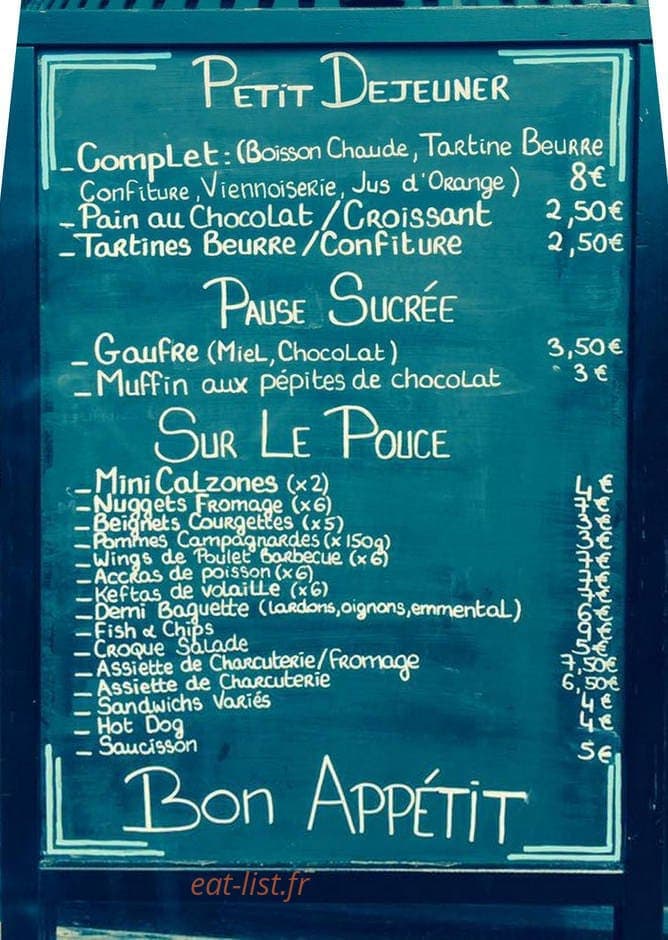 PETIT DEJEUNER
- Complet : (Boisson Chaude, Tartine Beurre
Confiture, Viennoiserie, Jus d'Orange) 8€
- Pain au Chocolat / Croissant 2,50€
- Tartines Beurre / Confiture 2,50€
PAUSE SUCRÉE
- Gaufre (Miel, Chocolat) 3,50€
- Muffin aux pépites de chocolat 3€
SUR LE POUCE
- Mini Calzones (x2) 4€
- Nuggets Fromage (x6) 7€
- Beignets Courgettes (x5) 3€
- Pommes Campagnardes (x150g) 3€
- Wings de Poulet Barbecue (x6) 7€
- Accras de poisson (x6) 7€
- Keftas de volaille (x6) 7€
- Demi Baguette (lardons, oignons, emmental) 6€
- Fish & Chips 9€
- Croque Salade 5€
- Assiette de Charcuterie / Fromage 7,50€
- Assiette de Charcuterie 6,50€
- Sandwichs Variés 4€
- Hot Dog 4€
- Saucisson 5€
BON APPÉTIT
eat-list.fr